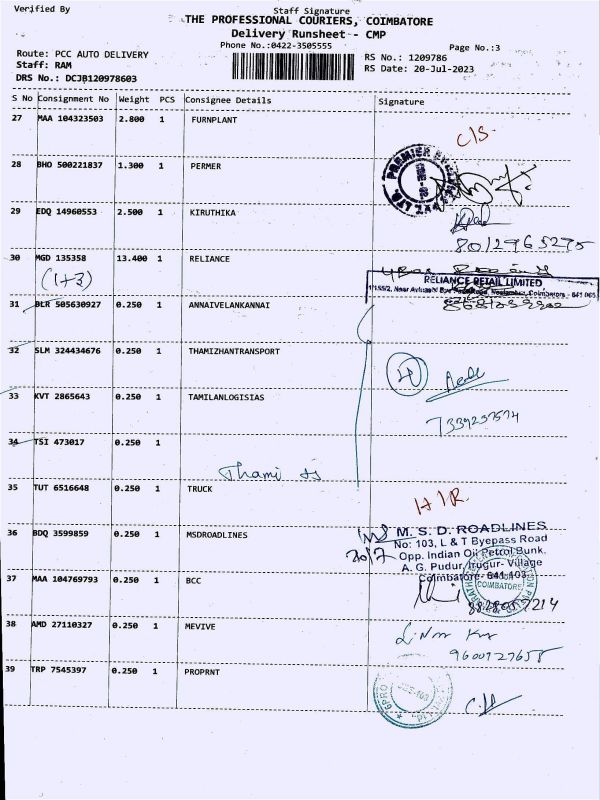 Verified By
Staff Signature
THE PROFESSIONAL COURIERS, COIMBATORE
Delivery Runsheet - CMP
Phone No.:0422-3505555
Page No.:3
Route: PCC AUTO DELIVERY
RS No.: 1209786
Staff: RAM
RS Date: 20-Jul-2023
DRS No.: DCJB120978603
S No Consignment No Weight PCS Consignee Details Signature
27 MAA 104323503 2.800 1 FURNPLANT
C/S.
28 BHO 500221837 1.300 1 PERMER
29 EDQ 14960553 2.500 1 KIRUTHIKA
8012965275
30 MGD 135358 13.400 1 RELIANCE
(1+3)
RELIANCE RETAIL LIMITED
31 BLR 505630927 0.250 1 ANNAIVELANKANNAI
32 SLM 324434676 0.250 1 THAMIZHANTRANSPORT
33 KVT 2865643 0.250 1 TAMILANLOGISIAS
34 TSI 473017 0.250 1
35 TUT 6516648 0.250 1 TRUCK
36 BDQ 3599859 0.250 1 MSDROADLINES
M. S. D. ROADLINES
No: 103, L & T Byepass Road
Opp. Indian Oil Petrol Bunk,
A. G. Pudur, Irugur- Village
Coimbatore- 641 103.
37 MAA 104769793 0.250 1 BCC
COIMBATORE
38 AMD 27110327 0.250 1 MEVIVE
9600727658
39 TRP 7545397 0.250 1 PROPRNT